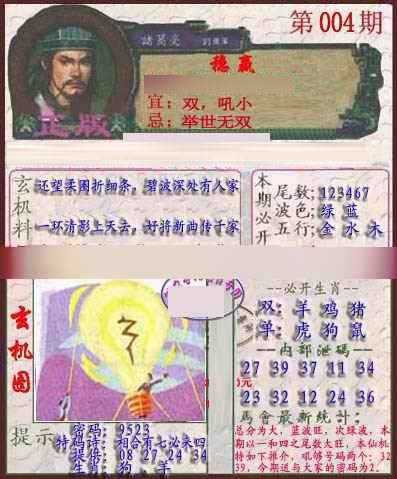 第004期
諸葛亮
稳赢
宜：双，吼小
忌：举世无双
正版
玄机料
还望柔圈折细条，碧波深处有人家
一环清影上天去，好将新曲传千家
本期必开
尾数：123467
波色：绿 蓝
五行：金 水 木
玄机图
--必开生肖--
双：羊 鸡 猪
单：虎 狗 鼠
--内部泄碼--
27 39 37 11 30 34
23 32 12 24 36
馬會最新统计：
总分为大，蓝波旺，次绿波，本
期以一和四之尾数大旺，本仙机
特如下推介，吼够号码两个：32
39，今期送与大家的密码为2。
提示
密码：9523
特码诗：相合有七必来四
提供：08 27 24 34
生肖：狗，羊